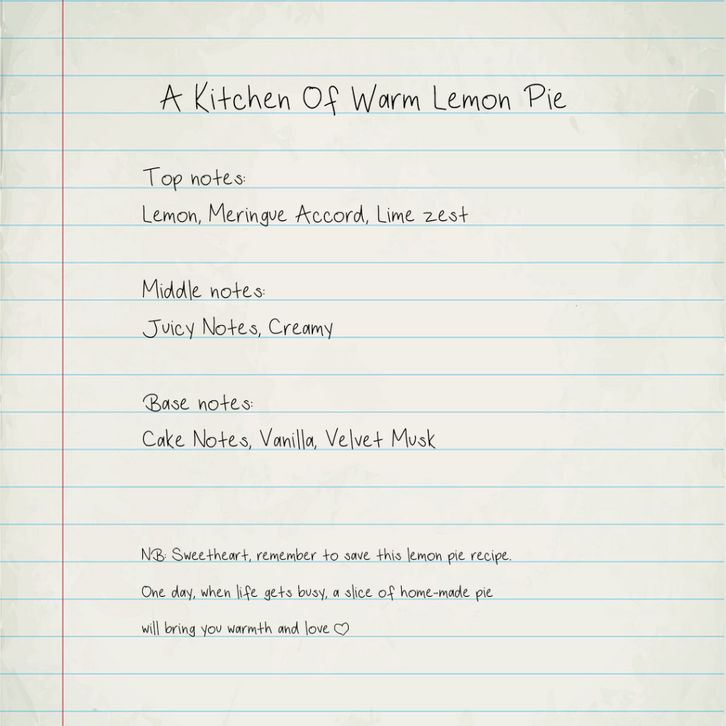 A Kitchen Of Warm Lemon Pie
Top notes:
Lemon, Meringue Accord, Lime zest
Middle notes:
Juicy Notes, Creamy
Base notes:
Cake Notes, Vanilla, Velvet Musk
NB: Sweetheart, remember to save this lemon pie recipe.
One day, when life gets busy, a slice of home-made pie
will bring you warmth and love ♡